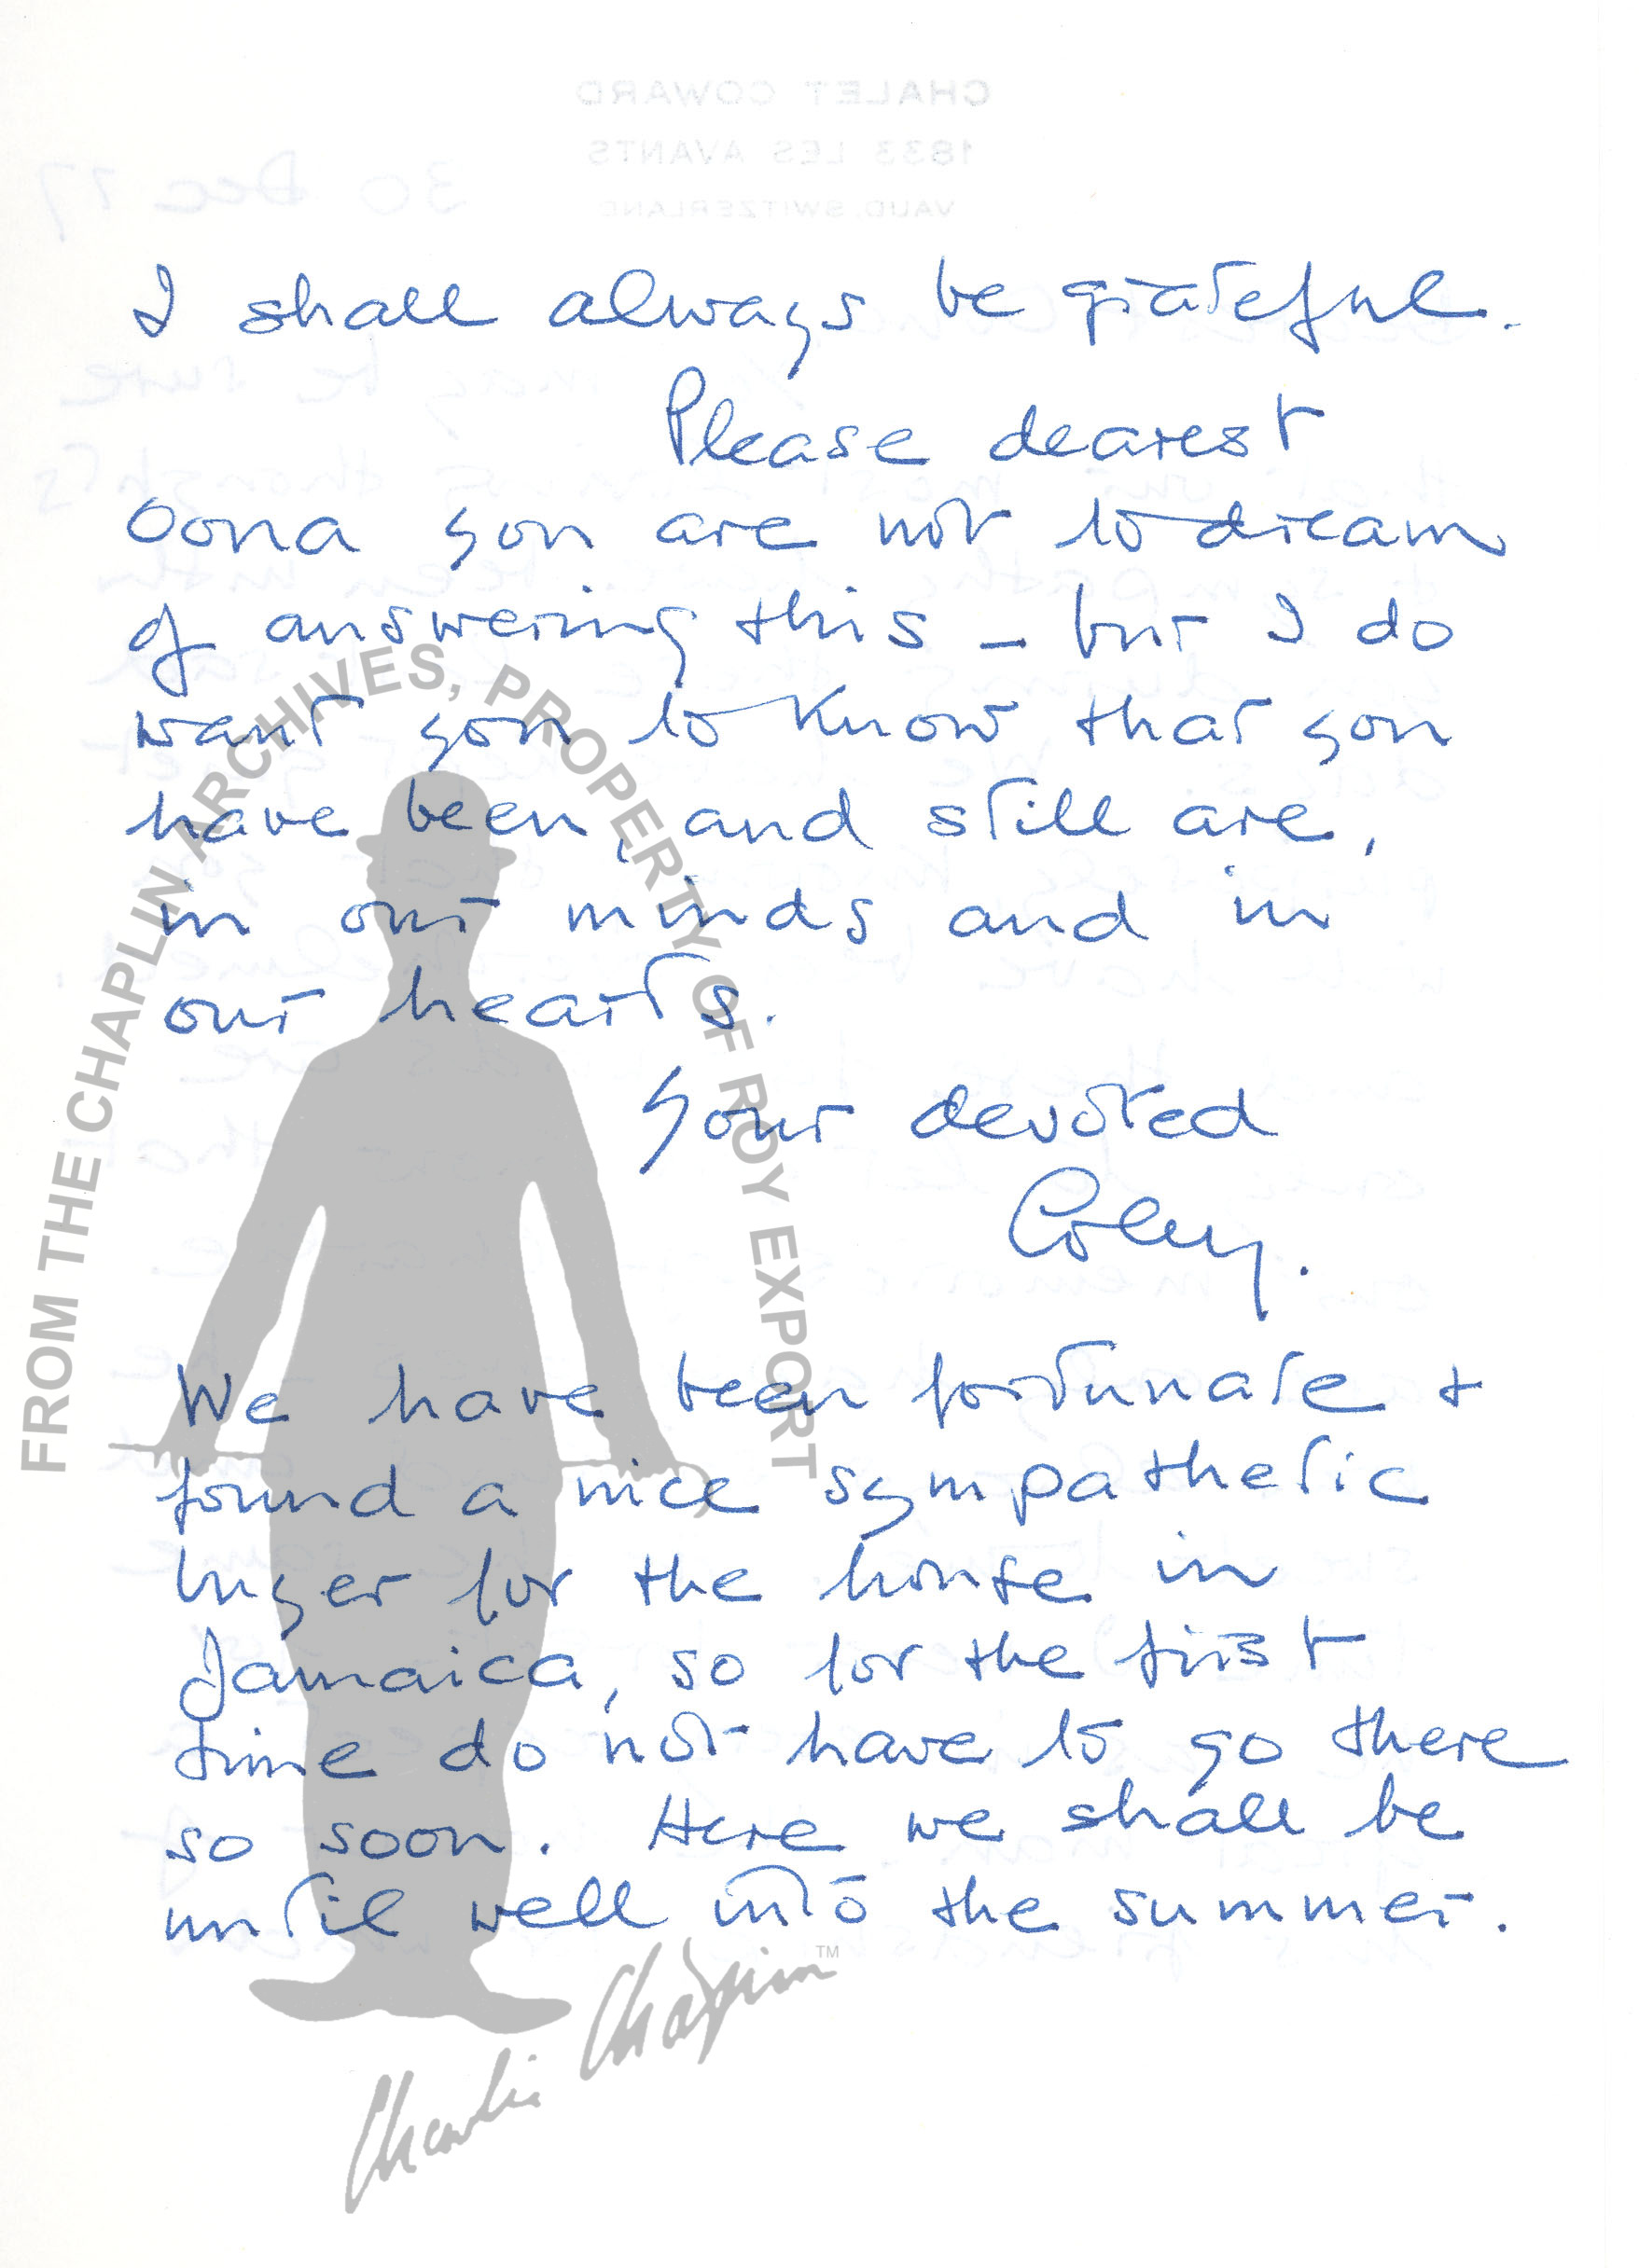 CHALET COWARD
1833 LES AVANTS
VAUD. SWITZERLAND
30 Dec 77
I shall always be grateful.
Please dearest
Oona you are not to dream
of answering this – but I do
want you to know that you
have been, and still are,
in our minds and in
our hearts.
Your devoted
Coley.
We have been fortunate +
found a nice sympathetic
buyer for the house in
Jamaica, so for the first
time do not have to go there
so soon. Here we shall be
until well into the summer.
FROM THE CHAPLIN ARCHIVES, PROPERTY OF ROY EXPORT
Charlie Chaplin™